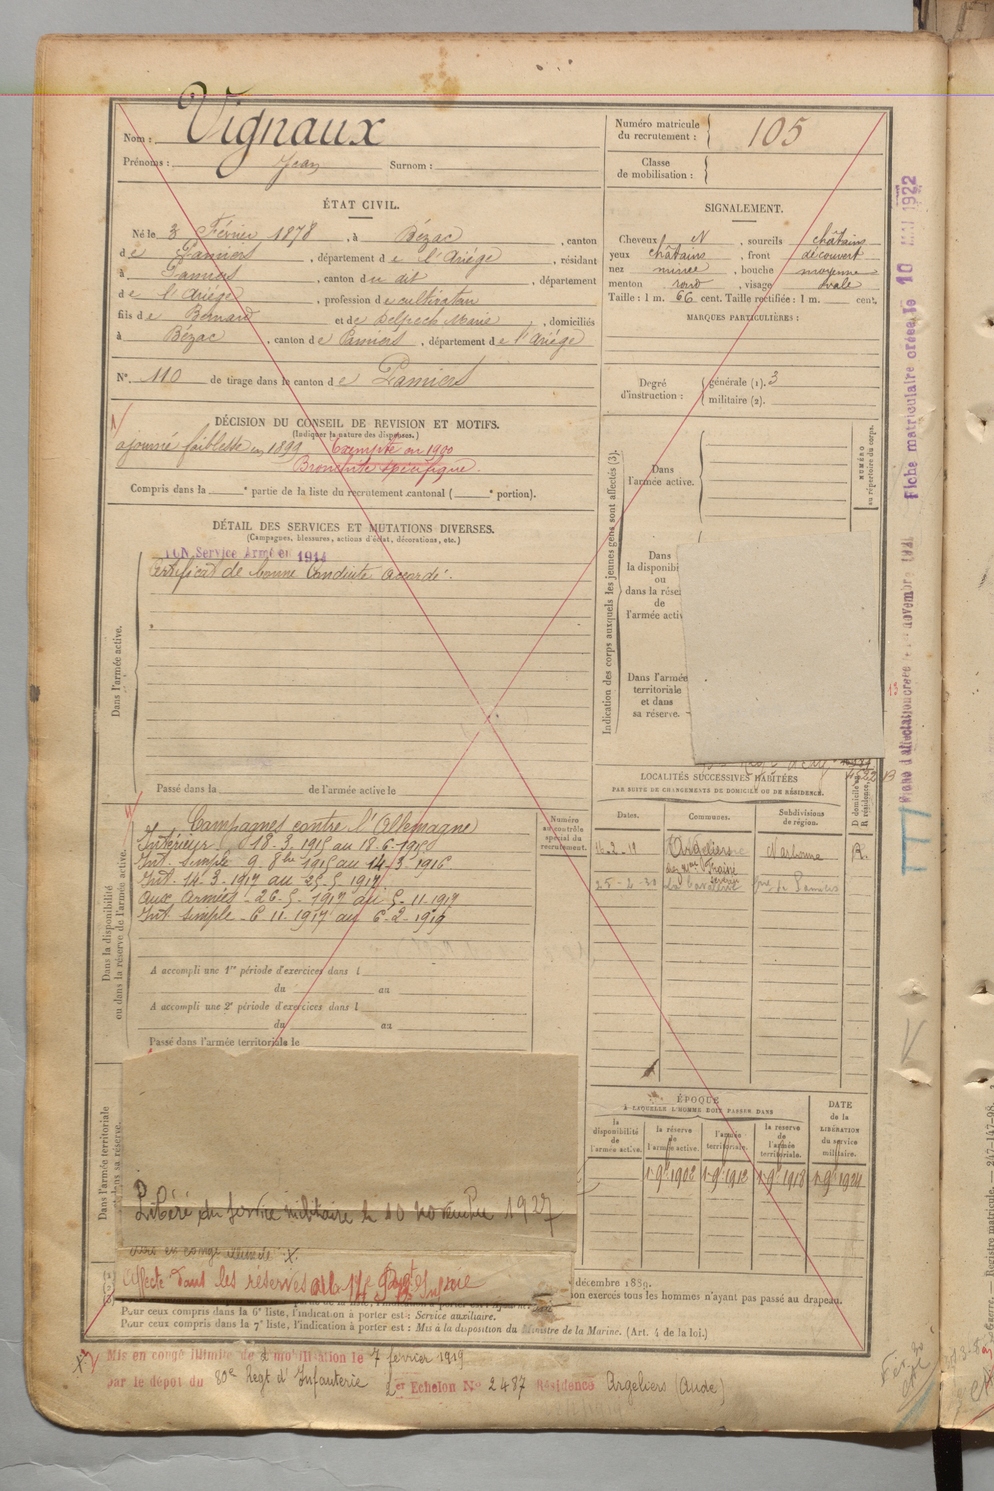 Nom : Vignaux
Prénoms : Jean Surnom :
Numéro matricule du recrutement : 105
Classe de mobilisation :
ÉTAT CIVIL.
Né le 3 Février 1878, à Bézac, canton
de Pamiers, département de l'Ariége, résidant
à Pamiers, canton du dit, département
de l'Ariége, profession de cultivateur
fils de Bernard et de Delpech Marie, domiciliés
à Bézac, canton de Pamiers, département de l'Ariége
N° 110 de tirage dans le canton de Pamiers
SIGNALEMENT.
Cheveux N, sourcils châtains
yeux châtains, front découvert
nez mince, bouche moyenne
menton rond, visage ovale
Taille : 1 m. 66 cent. Taille rectifiée : 1 m. cent.
MARQUES PARTICULIÈRES :
Degré d'instruction : générale (1). 3
militaire (2).
DÉCISION DU CONSEIL DE REVISION ET MOTIFS.
(Indiquer la nature des dispenses.)
ajourné faiblesse en 1899 Exempté en 1900
Bronchite spécifique.
Compris dans la e partie de la liste du recrutement cantonal ( e portion).
DÉTAIL DES SERVICES ET MUTATIONS DIVERSES.
(Campagnes, blessures, actions d'éclat, décorations, etc.)
Service Armé en 1914
Certificat de bonne Conduite accordé.
Dans l'armée active.
Passé dans la de l'armée active le
Indication des corps auxquels les jeunes gens sont affectés (3).
Dans l'armée active.
NUMÉRO au répertoire du corps.
Dans
la disponibi
ou
dans la rése
de
l'armée activ
Dans l'armée
territoriale
et dans
sa réserve.
LOCALITÉS SUCCESSIVES HABITÉES
PAR SUITE DE CHANGEMENTS DE DOMICILE OU DE RÉSIDENCE.
Dates. Communes. Subdivisions de région. D domicile ou R résidence.
16-2-19 Argeliers Narbonne R.
25-2-30 Pamiers
Dans la disponibilité ou dans la réserve de l'armée active.
Campagnes contre l'Allemagne
Intérieur 18-3-1915 au 18-6-1915
Int. simple 9 8bre 1915 au 14-3-1916
Int. 14-3-1917 au 25-5-1917
aux armées - 26-5-1917 au 5-11-1917
Int. simple - 6 11-1917 au 6-2-1919
Numéro au contrôle spécial du recrutement.
A accompli une 1re période d'exercices dans l
du au
A accompli une 2e période d'exercices dans l
du au
Passé dans l'armée territoriale le
Dans l'armée territoriale
Libéré du service militaire le 10 novembre 1927
Affecté dans les réserves
ÉPOQUE
A LAQUELLE L'HOMME DOIT PASSER DANS
la disponibilité de l'armée active. la réserve de l'armée active. l'armée territoriale. la réserve de l'armée territoriale. DATE de la LIBÉRATION du service militaire.
1-9e 1902 1-9e 1912 1-9e 1918 1-9e 1924
décembre 1889.
ion exercés tous les hommes n'ayant pas passé au drapeau.
Pour ceux compris dans la 6e liste, l'indication à porter est : Service auxiliaire.
Pour ceux compris dans la 7e liste, l'indication à porter est : Mis à la disposition du Ministre de la Marine. (Art. 4 de la loi.)
Mis en congé illimité de démobilisation le 7 février 1919
par le dépot du 80e Regt d'Infanterie 1er Echelon N° 2487 Résidence Argeliers (Aude)
Fiche matriculaire créée le 10 MAI 1922